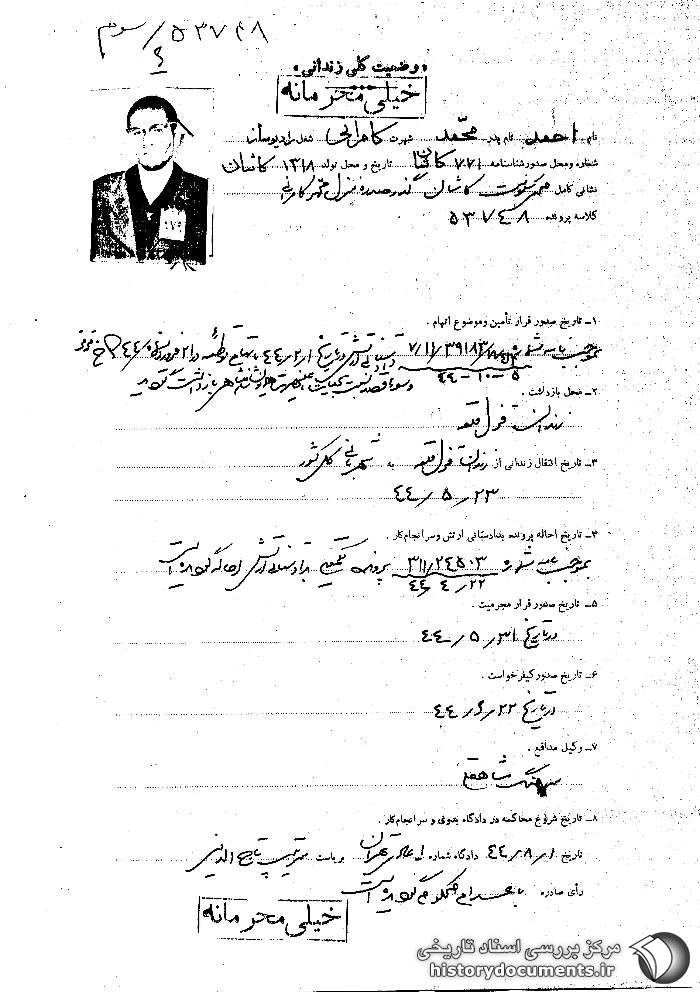 ۵۳۷۴۸/سوم
«وضعیت کلی زندانی»
خیلی محرمانه
نام احمد نام پدر محمد شهرت کامرانی شغل رادیوساز
شماره و محل صدور شناسنامه ۷۷۱ کاشان تاریخ و محل تولد ۱۳۱۸ کاشان
نشانی کامل کاشان گذر منزل محمد کامرانی
کلاسه پرونده ۵۳۷۴۸
۱ـ تاریخ صدور قرار تأمین و موضوع اتهام .
بموجب نامه شماره ۷/۱۱/۳۹۱۸۳ دادستانی ارتش در تاریخ ۴۴/۲/۱ باتهام توطئه در ۲۱ فروردین
۵-۱۰-۴۴ و سوءقصد نسبت بحیات اعلیحضرت همایون شاهنشاهی بازداشت گردید
۲ـ محل بازداشت .
زندان قزل قلعه
۳ـ تاریخ انتقال زندانی از زندان قزل قلعه به شهربانی کل کشور
۴۴/۵/۲۳
۴ـ تاریخ احاله پرونده بدادستانی ارتش و سرانجام کار .
بموجب نامه شماره ۳۱۱/۲۴۵۰۳ پرونده تکمیل بدادستانی ارتش احاله گردیده است
۴۴/۴/۲۲
۵ـ تاریخ صدور قرار مجرمیت .
در تاریخ ۴۴/۵/۳۱
۶ـ تاریخ صدور کیفرخواست .
در تاریخ ۴۴/۶/۲۲
۷ـ وکیل مدافع .
سرهنگ شاهقلی
۸ـ تاریخ شروع محاکمه در دادگاه بدوی و سرانجام کار .
تاریخ ۴۴/۸/۱ دادگاه شماره ۱ عادی تهران بریاست سرتیپ تاج الدینی
رأی صادره باعدام محکوم گردیده است
خیلی محرمانه
مرکز بررسی اسناد تاریخی
historydocuments.ir